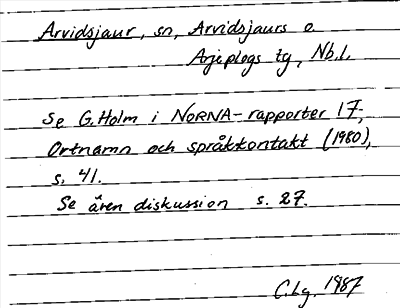 Arvidsjaur, sn, Arvidsjaurs o.
Arjeplogs tg, Nb.l.
Se G. Holm i NORNA-rapporter 17,
Ortnamn och språkkontakt (1980),
s. 41.
Se även diskussion s. 27.
C.Lg. 1987